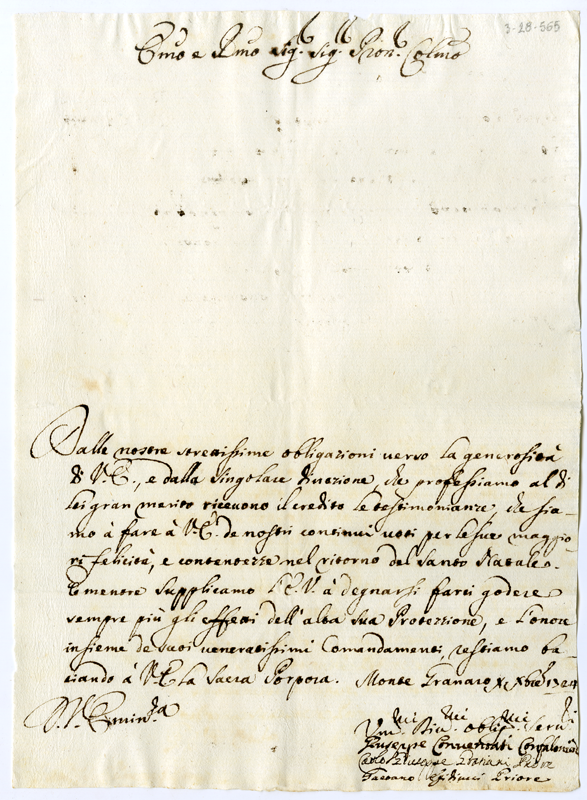 3-28-565
Emo e Rmo Sig. Sig. Pron. Colmo
Dalle nostre strettissime obligazioni verso la generosità
di V. E., e dalla singolare divozione, che professiamo al di
lei gran merito ricevono il credito le testimonianze, che sia-
mo à fare à V. E. de nostri continui voti per le sue maggio-
ri felicità, e contentezze nel ritorno del Santo Natale.
E mentre supplicamo l'E. V. à degnarsi farci godere
sempre più gli effetti dell'alta sua Protezzione, e l'onore
insieme de suoi veneratissimi Comandamenti, restiamo ba-
ciando à V. E. la Sacra Porpora. Monte Granaro X Xbre
D. V. Eminza
Umi Divi Obligi Servi
Giuseppe Conventati Confaloniere
Carlo Giuseppe Priore
Gaetano Priore